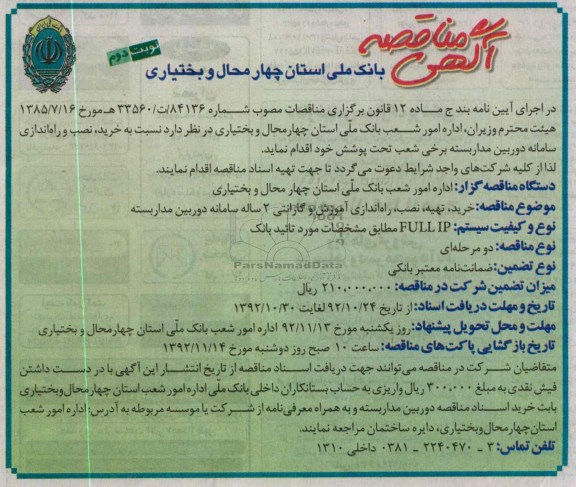 آگهی مناقصه
نوبت دوم
بانک ملی استان چهار محال و بختیاری
در اجرای آیین نامه بند ج ماده ۱۲ قانون برگزاری مناقصات مصوب شماره ۸۴۱۳۶/ت/۳۳۵۶۰ هـ مورخ ۱۳۸۵/۷/۱۶
هیئت محترم وزیران، اداره امور شعب بانک ملّی استان چهارمحال و بختیاری در نظر دارد نسبت به خرید، نصب و راه‌اندازی
سامانه دوربین مداربسته برخی شعب تحت پوشش خود اقدام نماید.
لذا از کلیه شرکت‌های واجد شرایط دعوت می‌گردد تا جهت تهیه اسناد مناقصه اقدام نمایند.
دستگاه مناقصه‌گزار: اداره امور شعب بانک ملّی استان چهار محال و بختیاری
موضوع مناقصه: خرید، تهیه، نصب، راه‌اندازی آموزش و گارانتی ۲ ساله سامانه دوربین مداربسته
نوع و کیفیت سیستم: FULL IP مطابق مشخصات مورد تائید بانک
نوع مناقصه: دو مرحله‌ای
نوع تضمین: ضمانت‌نامه معتبر بانکی
ParsNamadData
میزان تضمین شرکت در مناقصه: ۲۱۰,۰۰۰,۰۰۰ ریال
تاریخ و مهلت دریافت اسناد: از تاریخ ۹۲/۱۰/۲۴ لغایت ۱۳۹۲/۱۰/۳۰
مهلت و محل تحویل پیشنهاد: روز یکشنبه مورخ ۹۲/۱۱/۱۳ اداره امور شعب بانک ملّی استان چهارمحال و بختیاری
تاریخ بازگشایی پاکت‌های مناقصه: ساعت ۱۰ صبح روز دوشنبه مورخ ۱۳۹۲/۱۱/۱۴
متقاضیان شرکت در مناقصه می‌توانند جهت دریافت اسناد مناقصه از تاریخ انتشار این آگهی با در دست داشتن
فیش نقدی به مبلغ ۳۰۰,۰۰۰ ریال واریزی به حساب بستانکاران داخلی بانک ملّی اداره امور شعب استان چهارمحال‌وبختیاری
بابت خرید اسناد مناقصه دوربین مداربسته و به همراه معرفی‌نامه از شرکت یا موسسه مربوطه به آدرس: اداره امور شعب
استان چهارمحال‌وبختیاری، دایره ساختمان مراجعه نمایند.
تلفن تماس: ۳ ـ ۲۲۴۰۴۷۰ ـ ۰۳۸۱ داخلی ۱۳۱۰